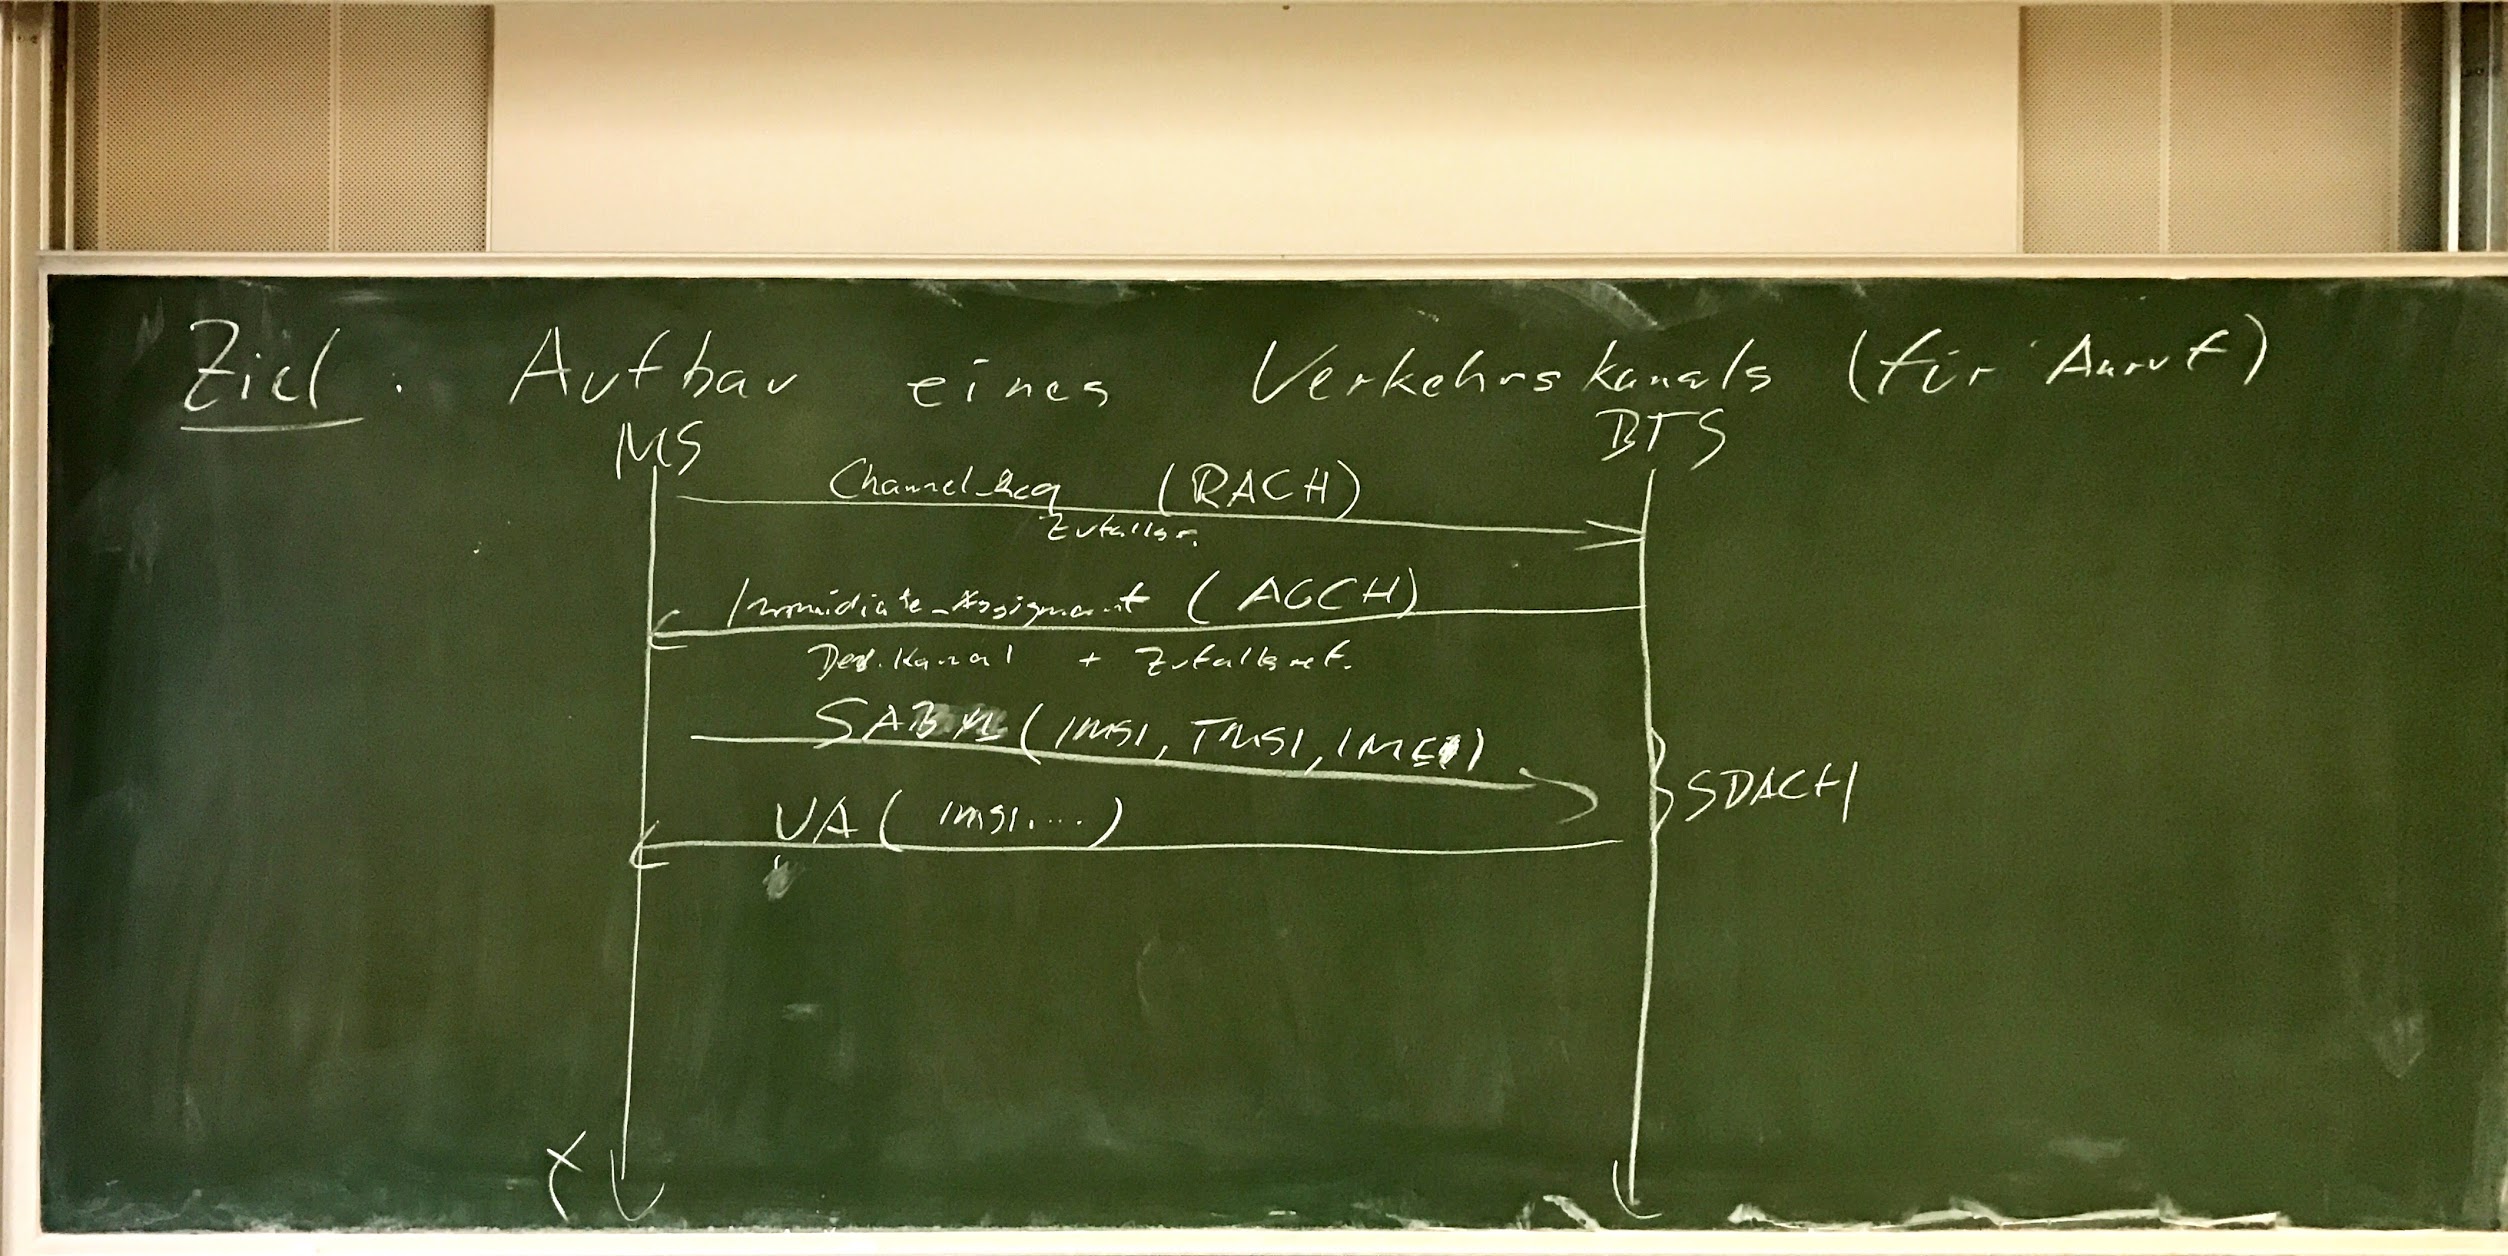 Ziel: Aufbau eines Verkehrskanals (für Anruf)
MS BTS
Channel_Req (RACH)
Zufallsr.
Immidiate_Assignment (AGCH)
Ded. Kanal + Zufallsref.
SABM (IMSI, TMSI, IMEI)
SDACH
UA (IMSI, ...)
t